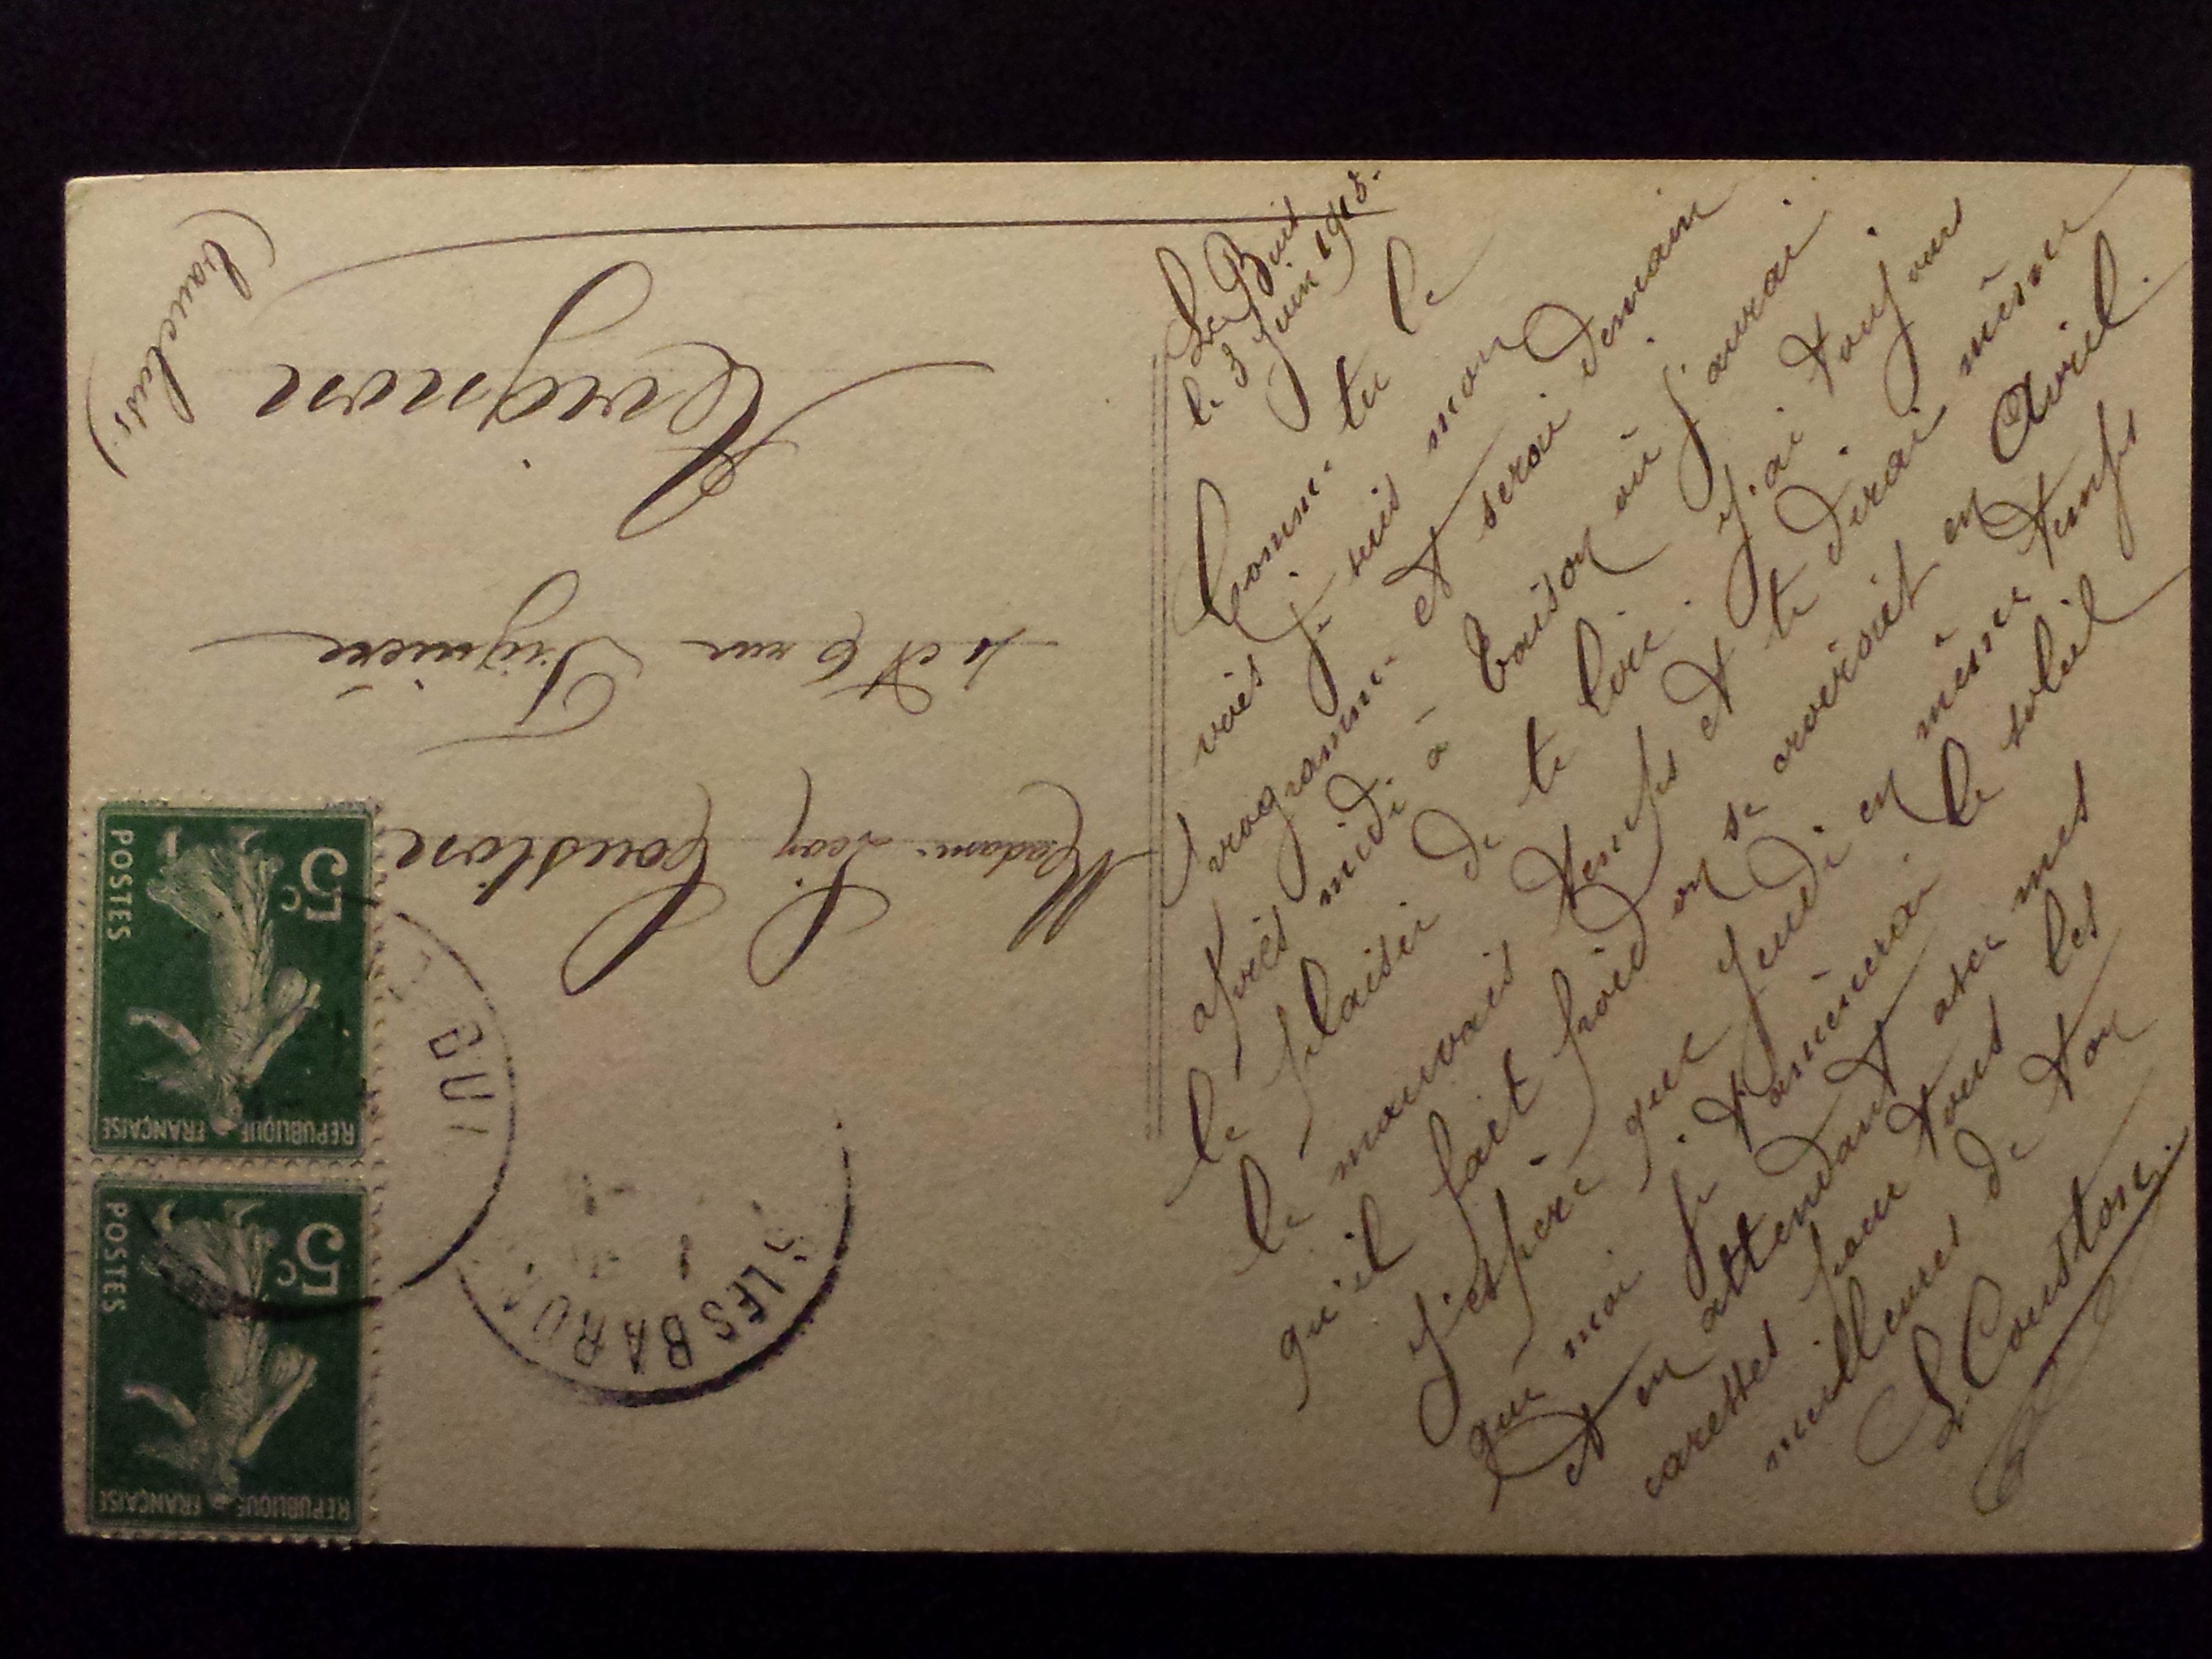 Le Buis
le 3 Juin 1918.
Comme tu le
vois je suis mon
programme et serai demain
après midi à Vaison où j'aurai
le plaisir de te lire. J'ai toujours
le mauvais temps et te dirai même
qu'il fait froid on se croirait en Avril.
J'espère que Jeudi en même temps
que moi je t'amènerai le soleil
et en attendant avec mes
caresses pour tous les
meilleures de ton
L Coustone.
Madame Léon Coustone
4 et 6 rue Pignière
Avignon
(Vaucluse)
RÉPUBLIQUE FRANÇAISE
5c
POSTES
RÉPUBLIQUE FRANÇAISE
5c
POSTES
BUI
S LES BARON